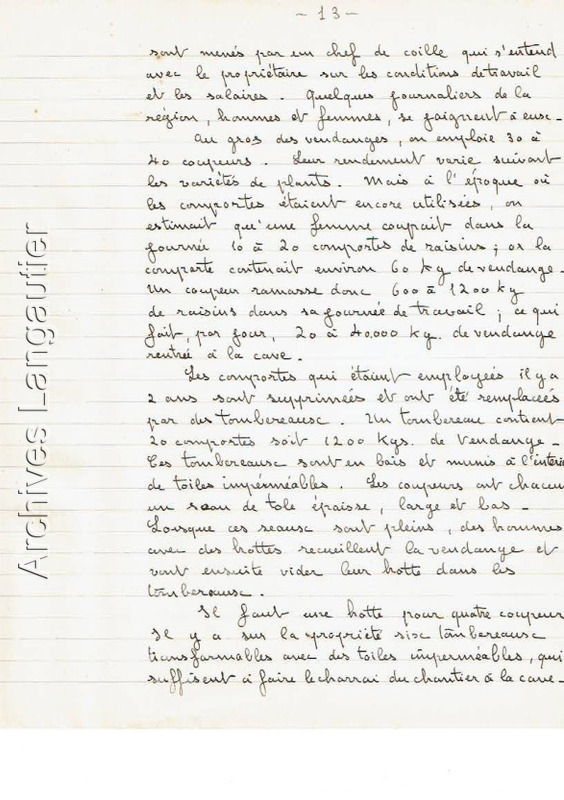 - 13 -
sont menés par un chef de coille qui s'entend
avec le propriétaire sur les conditions de travail
et les salaires. Quelques journaliers de la
région, hommes et femmes, se joignent à eux.
Au gros des vendanges, on emploie 30 à
40 coupeurs. Leur rendement varie suivant
les variétés de plants. Mais à l'époque où
les comportes étaient encore utilisées, on
estimait qu'une femme coupait dans la
journée 10 à 20 comportes de raisins ; or la
comporte contenait environ 60 kg de vendange.
Un coupeur ramasse donc 600 à 1200 kg
de raisins dans sa journée de travail ; ce qui
fait, par jour, 20 à 40.000 kg. de vendange
rentrée à la cave.
Les comportes qui étaient employées il y a
2 ans sont supprimées et ont été remplacées
par des tombereaux. Un tombereau contient
20 comportes soit 1200 Kgs. de Vendange.
Ces tombereaux sont en bois et munis à l'intéri
de toiles imperméables. Les coupeurs ont chacun
un seau de tole épaisse, large et bas.
Lorsque ces seaux sont pleins, des hommes
avec des hottes recueillent la vendange et
vont ensuite vider leur hotte dans les
tombereaux.
Il faut une hotte pour quatre coupeur
Il y a sur la propriété six tombereaux
transformables avec des toiles imperméables, qui
suffisent à faire le charroi du chantier à la cave.
Archives Langautier